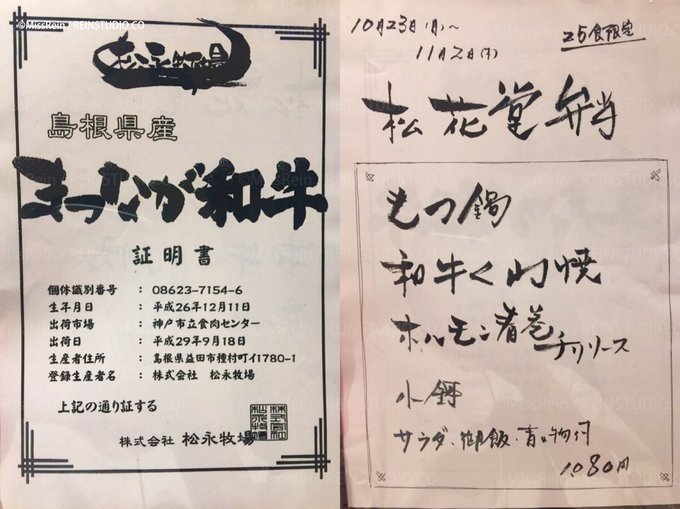 © MissRein / REINSTUDIO.CO
松永牧場
島根県産
まつなが和牛
証明書
個体識別番号 : 08623-7154-6
生年月日 : 平成26年12月11日
出荷市場 : 神戸市立食肉センター
出荷日 : 平成29年9月18日
生産者住所 : 島根県益田市種村町イ1780-1
登録生産者名 : 株式会社 松永牧場
上記の通り証する
株式会社 松永牧場
10月23日(月)~
11月2日(木)
25食限定
松花堂弁当
もつ鍋
和牛くわ焼
ホルモン春巻チリソース
小鉢
サラダ、御飯、香の物付
1,080円